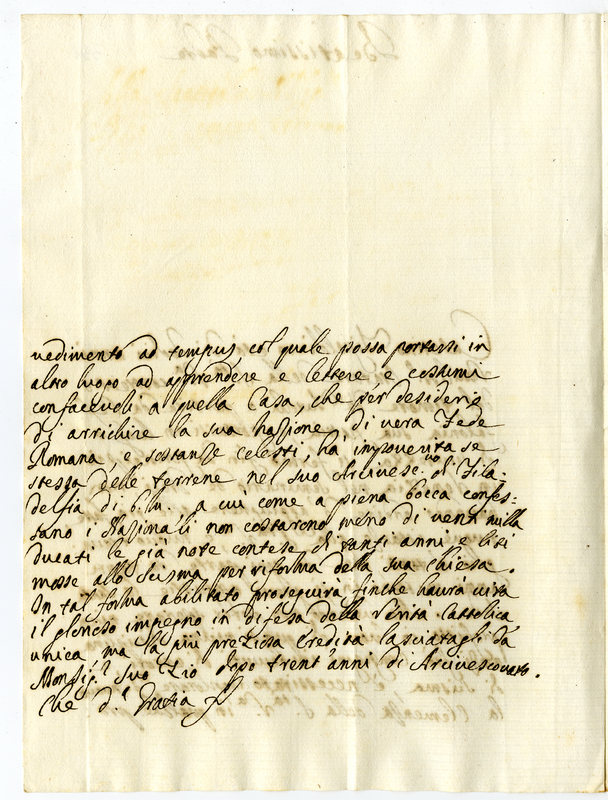 vedimento ad tempus, col quale possa portarsi in
altro luogo ad apprendere e lettere, e costumi
confacevoli a quella Casa, che per desiderio
di arrichire la sua nazione, di vera Fede
Romana, e sostanze celesti, ha impoverita se
stessa delle terrene nel suo Arcivesc.vo di Fila-
delfia di b. m. a cui come a piena bocca confes-
sano i Nazionali non costarono meno di venti milla
ducati le già note contese di tanti anni e liti
mosse allo Scisma per riforma della sua Chiesa.
In tal forma abilitato proseguirà finche haurà vita
il glorioso impegno in difesa della Verità Cattolica,
unica, ma la più preziosa Eredità lasciatagli da
Monsig.r suo Zio dopo trent'anni di Arcivescovato.
Che d.a Grazia